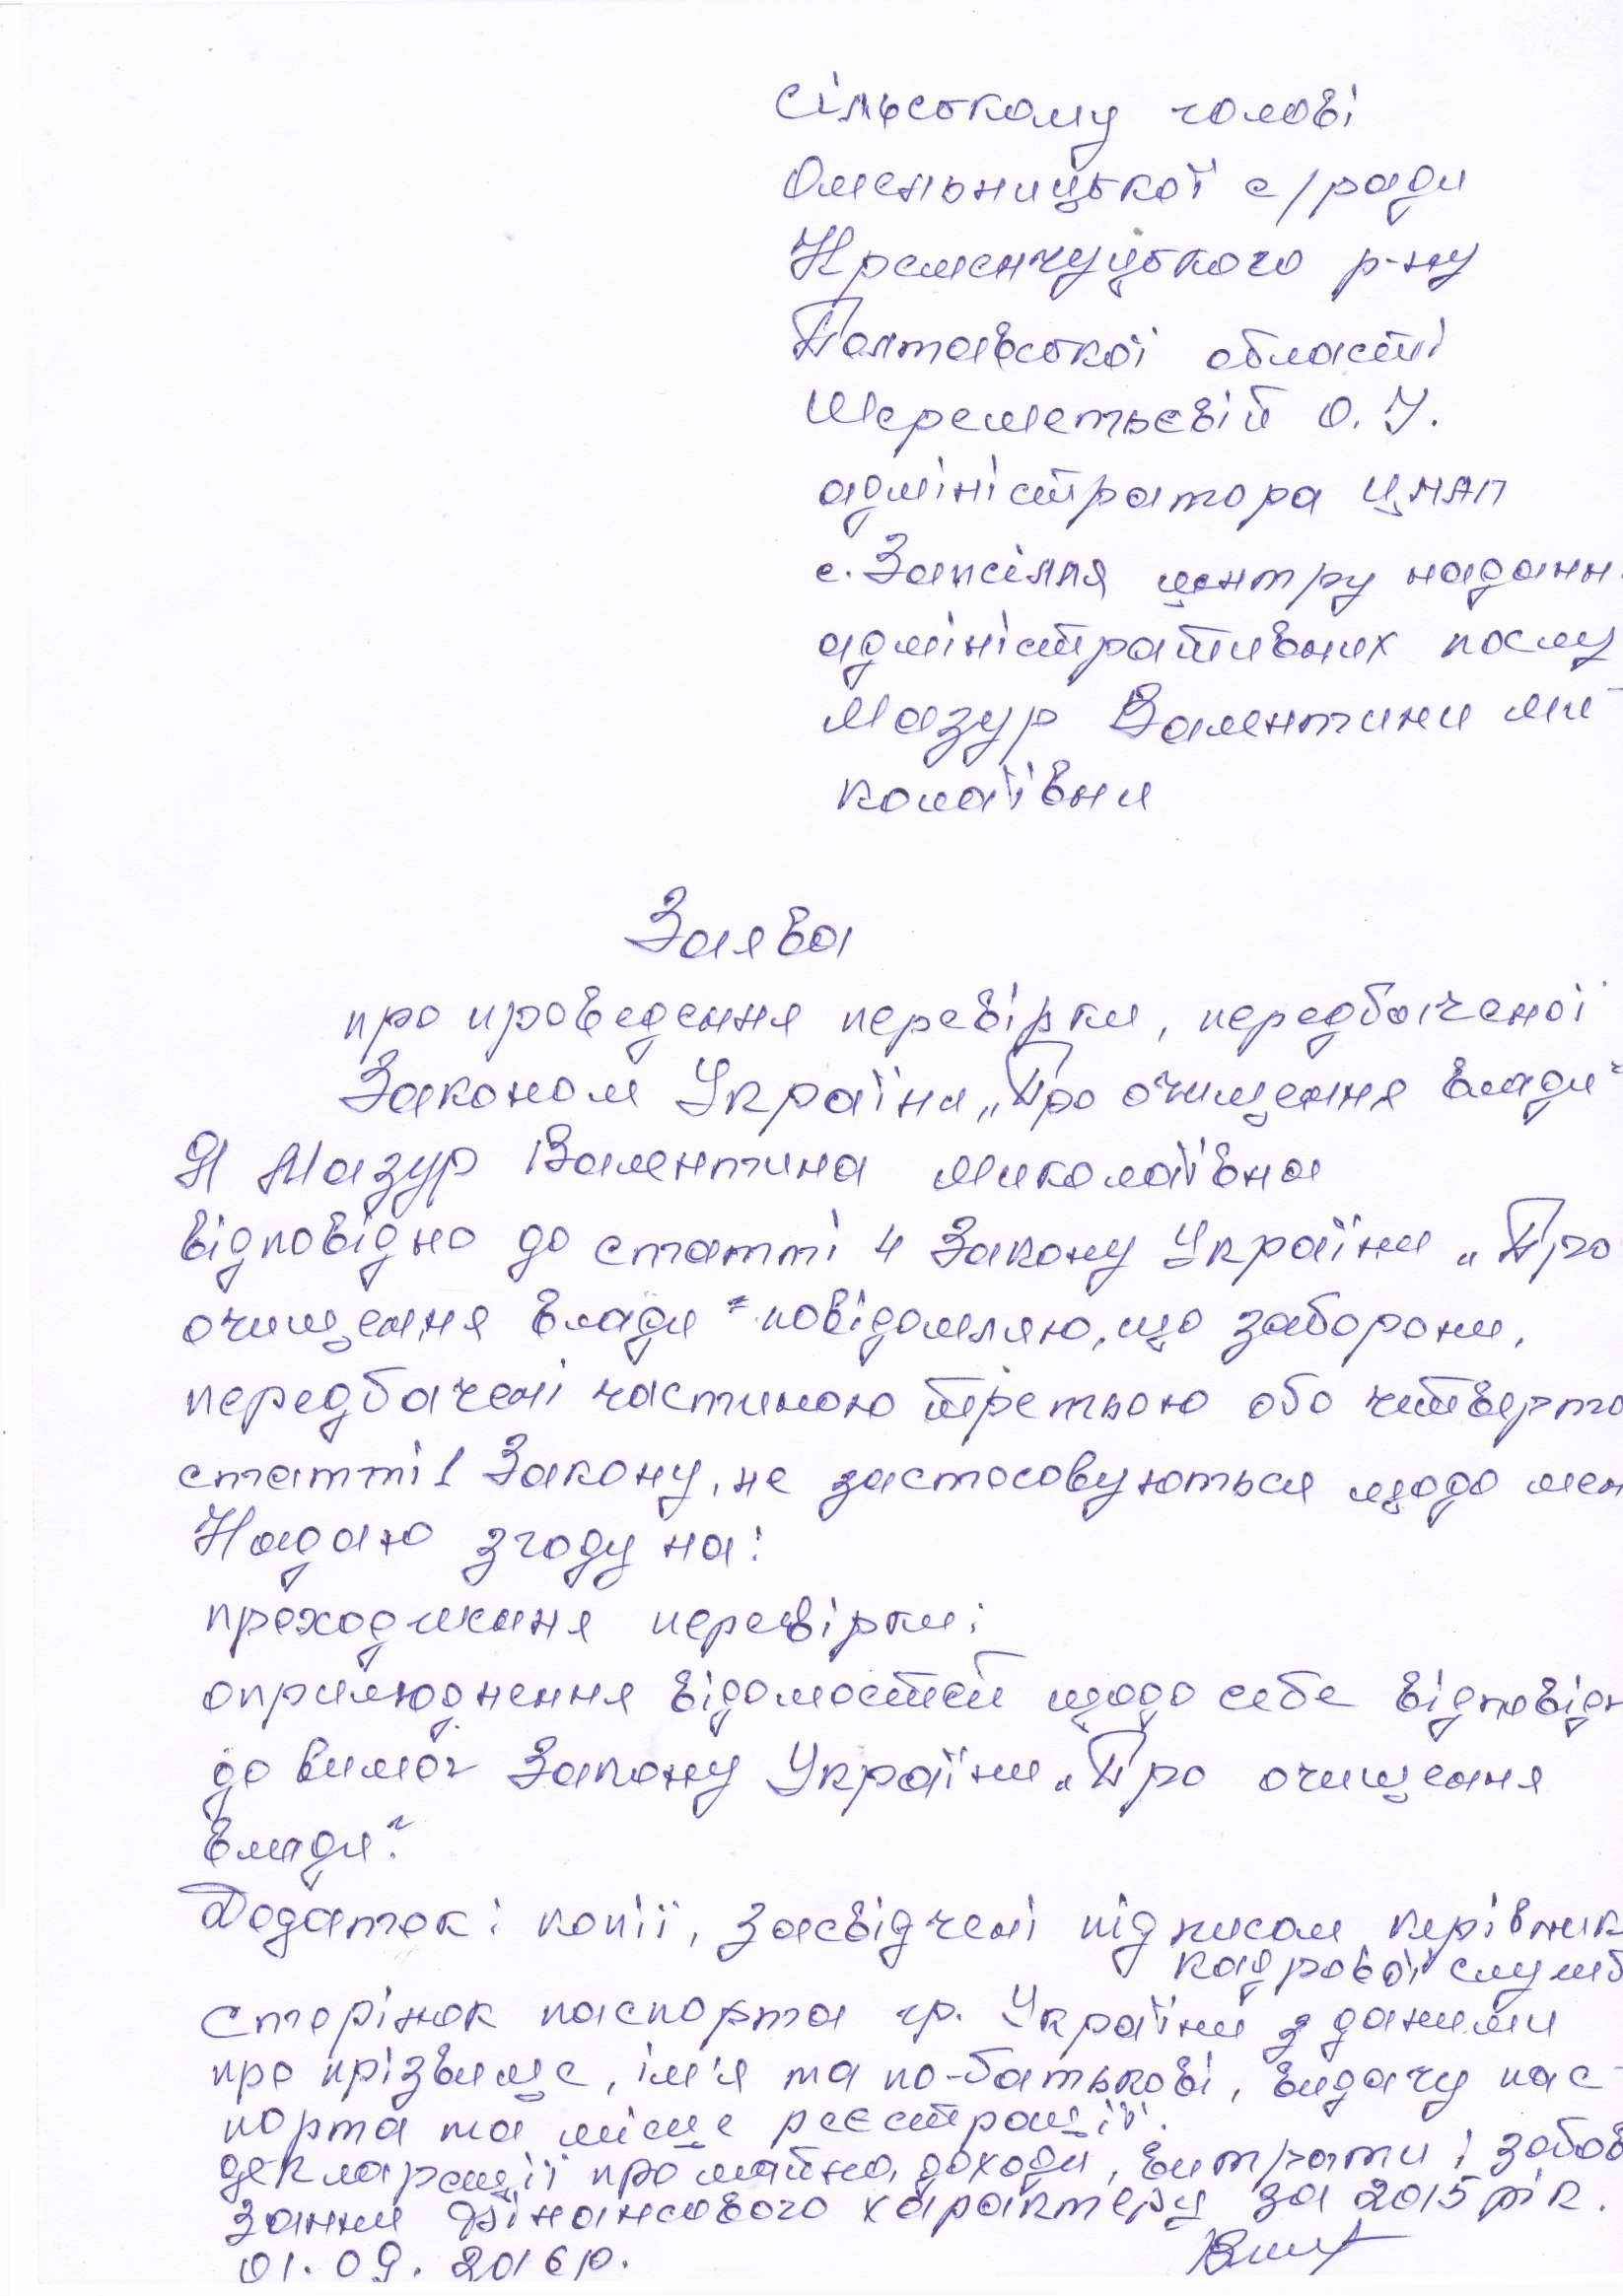 сільському голові
Омельницької с/ради
Кременчуцького р-ну
Полтавської області
Шереметьєвій О. У.
адміністратора ЦНАП
с. Запсілля центру наданн
адміністративних послу
Мазур Валентини Ми-
колаївни
Заява
про проведення перевірки, передбаченої
Законом України „Про очищення влади"
Я Мазур Валентина Миколаївна
відповідно до статті 4 Закону України „Про
очищення влади" повідомляю, що заборони,
передбачені частиною третьою або четверто
статті 1 Закону, не застосовуються щодо мен
Надаю згоду на:
проходження перевірки;
оприлюднення відомостей щодо себе відповідн
до вимог Закону України „Про очищення
влади".
Додаток: копії, засвідчені підписом керівник
кадрової служб
сторінок паспорта гр. України з даними
про прізвище, ім'я та по-батькові, видачу пас-
порта та місце реєстрації.
декларації про майно, доходи, витрати і зобов
зання фінансового характеру за 2015 рік.
01.09.2016р.